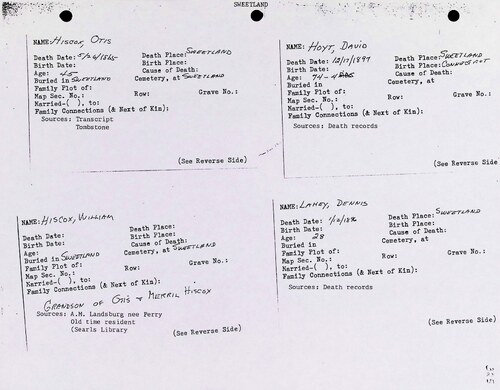 SWEETLAND
NAME: HISCOX, OTIS
Death Date: 5/24/1865 Death Place: SWEETLAND
Birth Date: Birth Place:
Age: 45 Cause of Death:
Buried in SWEETLAND Cemetery, at SWEETLAND
Family Plot of:
Map Sec. No.: Row: Grave No.:
Married-( ), to:
Family Connections (& Next of Kin):
Sources: Transcript
Tombstone
(See Reverse Side)
NAME: HOYT, DAVID
Death Date: 12/17/1897 Death Place: SWEETLAND
Birth Date: Birth Place: CONNECTICUT
Age: 74- Cause of Death:
Buried in Cemetery, at
Family Plot of:
Map Sec. No.: Row: Grave No.:
Married-( ), to:
Family Connections (& Next of Kin):
Sources: Death records
(See Reverse Side)
NAME: HISCOX, WILLIAM
Death Date: Death Place:
Birth Date: Birth Place:
Age: Cause of Death:
Buried in SWEETLAND Cemetery, at SWEETLAND
Family Plot of:
Map Sec. No.: Row: Grave No.:
Married-( ), to:
Family Connections (& Next of Kin):
GRANDSON OF OTIS & MERRIL HISCOX
Sources: A.M. Landsburg nee Perry
Old time resident
(Searls Library)
(See Reverse Side)
NAME: LANEY, DENNIS
Death Date: Death Place: SWEETLAND
Birth Date: Birth Place:
Age: 28 Cause of Death:
Buried in Cemetery, at
Family Plot of:
Map Sec. No.: Row: Grave No.:
Married-( ), to:
Family Connections (& Next of Kin):
Sources: Death records
(See Reverse Side)